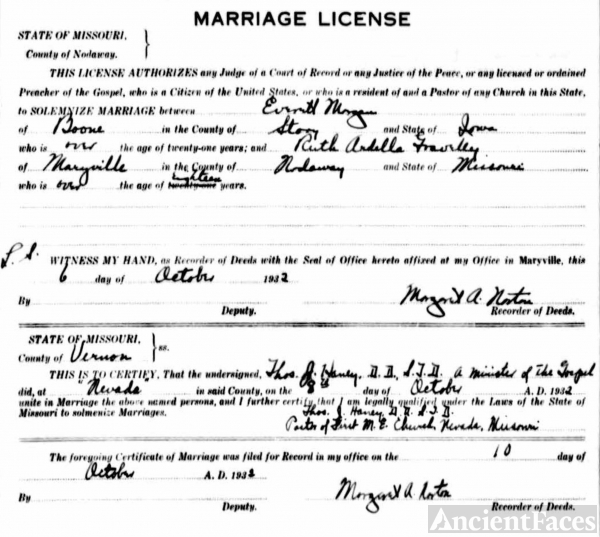 MARRIAGE LICENSE
STATE OF MISSOURI, }
County of Nodaway.
THIS LICENSE AUTHORIZES any Judge of a Court of Record or any Justice of the Peace, or any licensed or ordained
Preacher of the Gospel, who is a Citizen of the United States, or who is a resident of and a Pastor of any Church in this State,
to SOLEMNIZE MARRIAGE between Everett Morgan
of Boone in the County of Story and State of Iowa
who is over the age of twenty-one years; and Ruth Ardella
of Maryville in the County of Nodaway and State of Missouri
who is over the age of twenty-one eighteen years.
L. S. WITNESS MY HAND, as Recorder of Deeds with the Seal of Office hereto affixed at my Office in Maryville, this
6 day of October 1932
By Margaret A. Norton
Deputy. Recorder of Deeds.
STATE OF MISSOURI, } ss.
County of Vernon
THIS IS TO CERTIFY, That the undersigned, Thos. J. Haney, D. D., S. T. D. A minister of The Gospel
did, at Nevada in said County, on the 8th day of October A. D. 1932
unite in Marriage the above named persons, and I further certify that I am legally qualified under the Laws of the State of
Missouri to solmenize Marriages. Thos. J. Haney, D. D. S. T. D.
Pastor of First M. E. Church, Nevada, Missouri
The foregoing Certificate of Marriage was filed for Record in my office on the 10 day of
October A. D. 1932
By Margaret A. Norton
Deputy. Recorder of Deeds.
AncientFaces